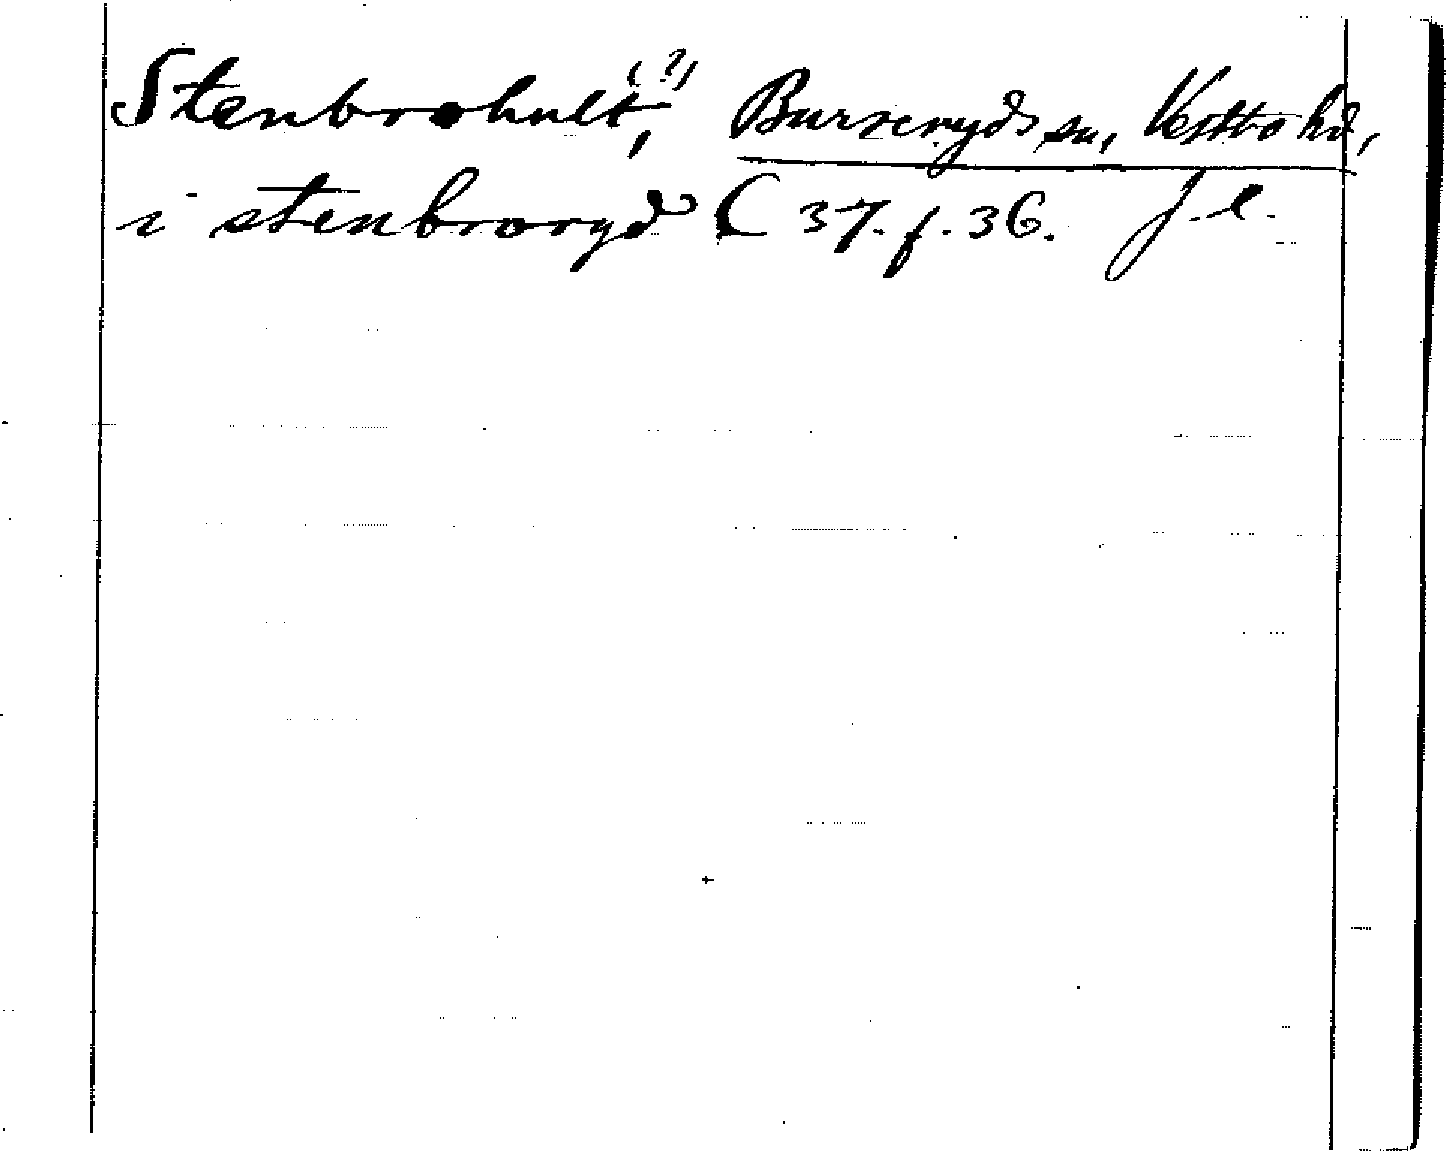 Stenbrohult, (?) Burseryds sn, Västbo hd,
i stenbroryd C 37. f. 36. J. l.